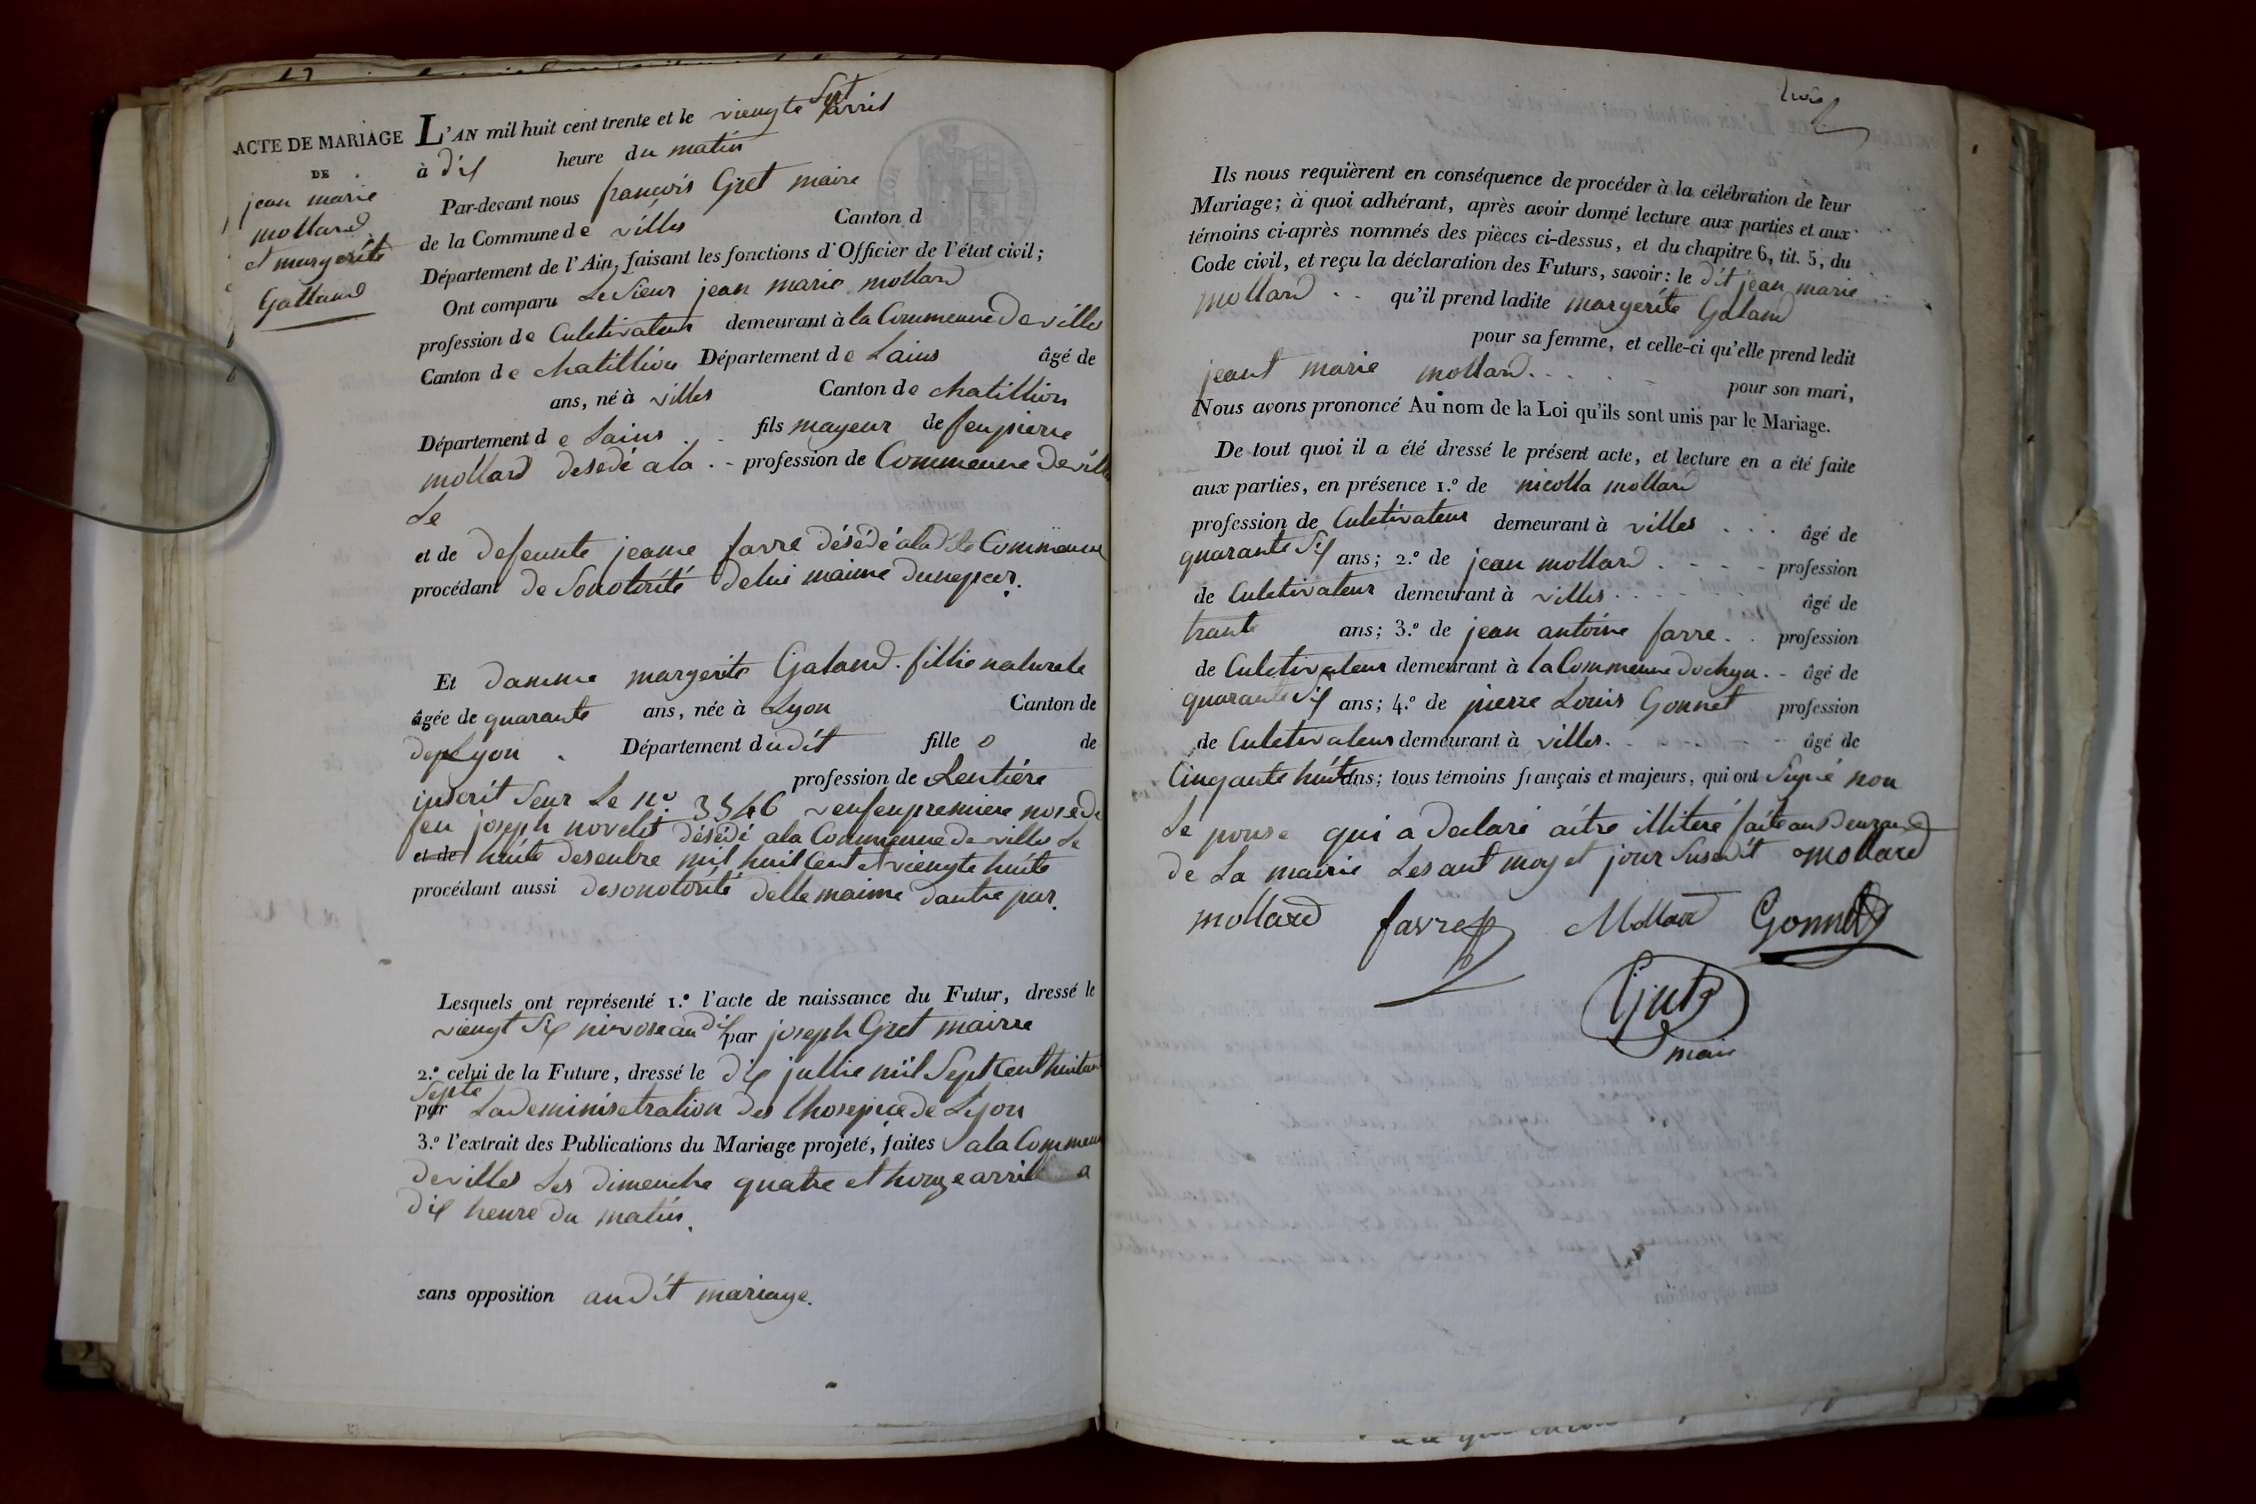 ACTE DE MARIAGE
DE
jean marie
mollard
et margerite
Galland
L'AN mil huit cent trente et le viengte Sept avril
à dix heure du matin
Par-devant nous francois Gret maire
de la Commune de villes Canton d
Département de l'Ain, faisant les fonctions d'Officier de l'état civil;
Ont comparu Le Sieur jean marie mollard
profession de Culetivateur demeurant à la Commeune de villes
Canton de chatillion Département de Lains âgé de
ans, né à villes Canton de chatillion
Département de Lains fils mayeur de feu pierre
mollard desedé a la profession de Commeune de villes
Le
et de defeunte jeanne favre désédé a la dite Commeune
procédant de Sonotorité de lui maime dunepar.
Et damme margerite Galand. fillie naturele
âgée de quarante ans, née à Lyon Canton de
dep Lyon Département dudit fille o de
profession de Rentiére
inscrit Seur Le no. 3546 veufe premiere nose de
feu joseph novelet désédé a la Commeune de villes Le
et de huite desenbre mil huit Cent et viengte huite
procédant aussi desonotorité delle maime dautre par.
Lesquels ont représenté 1.° l'acte de naissance du Futur, dressé le
viengt Six nivose an dix par joseph Gret mairre
2.° celui de la Future, dressé le dix jullie mil Sept Cent huitan
Septe
par Lademinisetration des l'hosepice de Lyon
3.° l'extrait des Publications du Mariage projeté, faites a la Commeun
de villes Les dimenche quatre et honze avril a
dix heure du matin.
sans opposition audit mariage.
trois
Ils nous requièrent en conséquence de procéder à la célébration de leur
Mariage; à quoi adhérant, après avoir donné lecture aux parties et aux
témoins ci-après nommés des pièces ci-dessus, et du chapitre 6, tit. 5, du
Code civil, et reçu la déclaration des Futurs, savoir: le dit jean marie
mollard qu'il prend ladite margerite Galand
pour sa femme, et celle-ci qu'elle prend ledit
jeant marie mollard. pour son mari,
Nous avons prononcé Au nom de la Loi qu'ils sont unis par le Mariage.
De tout quoi il a été dressé le présent acte, et lecture en a été faite
aux parties, en présence 1.° de nicolla mollard
profession de Culetivateur demeurant à villes âgé de
quarante Six ans; 2.° de jean mollard profession
de Culetivateur demeurant à villes âgé de
trante ans; 3.° de jean antoine favre profession
de Culetivateur demeurant à la Commeune dochya âgé de
quarante Six ans; 4.° de pierre Louis Gonnet profession
de Culetivateur demeurant à villes. âgé de
Cinqante huit ans; tous témoins français et majeurs, qui ont Signé non
Le pouse qui a declaré aitre illiteré fait au Beureau
de La mairie Les ant moy et jour Susdit mollard
mollard favre Mollard Gonnet
Gret
maire